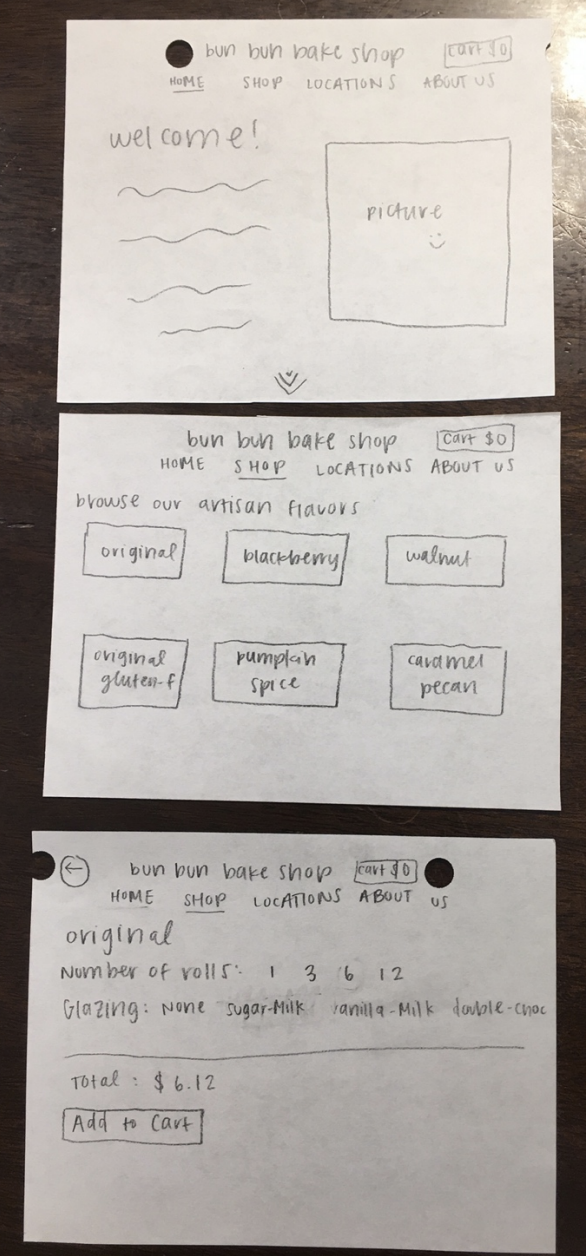 bun bun bake shop cart $0
HOME SHOP LOCATIONS ABOUT US
welcome!
picture
bun bun bake shop cart $0
HOME SHOP LOCATIONS ABOUT US
browse our artisan flavors
original blackberry walnut
original pumpkin caramel
gluten-f spice pecan
bun bun bake shop cart $0
HOME SHOP LOCATIONS ABOUT US
original
Number of rolls: 1 3 6 12
Glazing: None sugar-Milk vanilla-Milk double-choc
Total: $6.12
Add to Cart